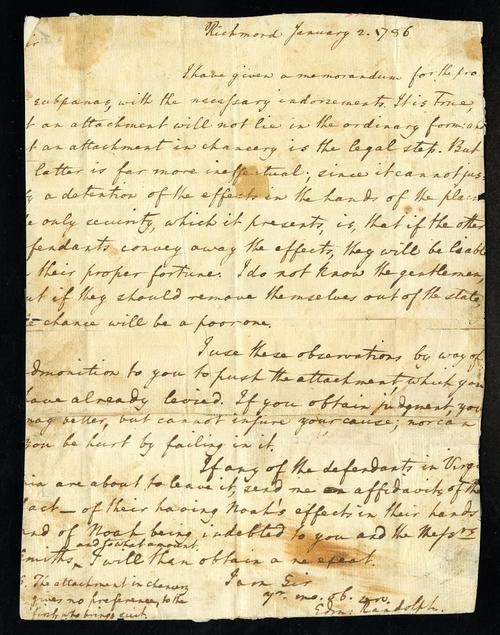 Richmond January 2. 1786
ir
I have given a memorandum for the pro
subpanas, with the necessary indorsements. It is True,
t an attachment will not lie in the ordinary form: and
t an attachment in chancery is the legal step. But
latter is far more ineffectual; since it cannot jus-
a detention of the effects in the hands of the
e only security, which it presents, is, that if the other
fendants convey away the effects, they will be liable
their proper fortune. I do not know the gentlemen,
ut if they should remove themselves out of the state
e chance will be a poor one.
I use these observations by way of
dmonition to you to push the attachment, which you
have already levied. If you obtain judgment, you
may better, but cannot injure your cause; nor can
you be hurt by failing in it.
If any of the defendants in Virgi
nia are about to leave it, send me an affidavit, of the
fact — of their having Noah's effects in their hands
and of Noah being indebted to you and the Messrs
and to what amount
Smiths, I will than obtain a ne exeat.
I am Sir
yr. mo. ob. serv.
Edm: Randolph.
The attachment in chancery
gives no preference, to the
first who brings suit.